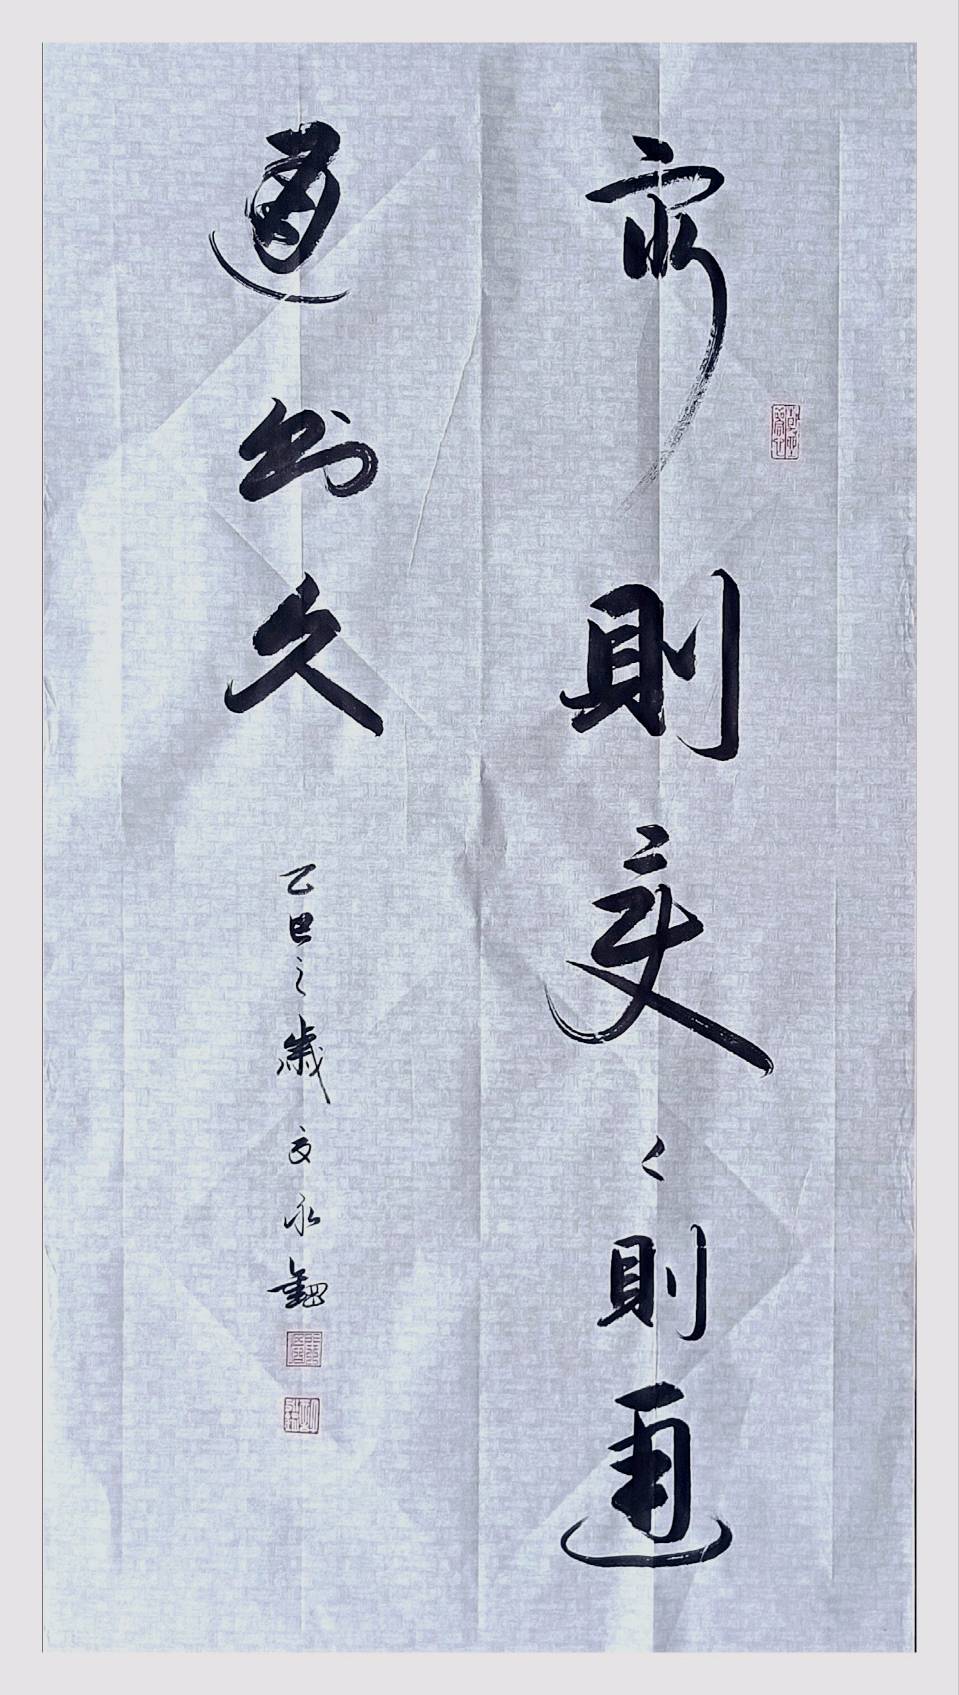 窮則變々則通
通則久
乙巳之歲 文永